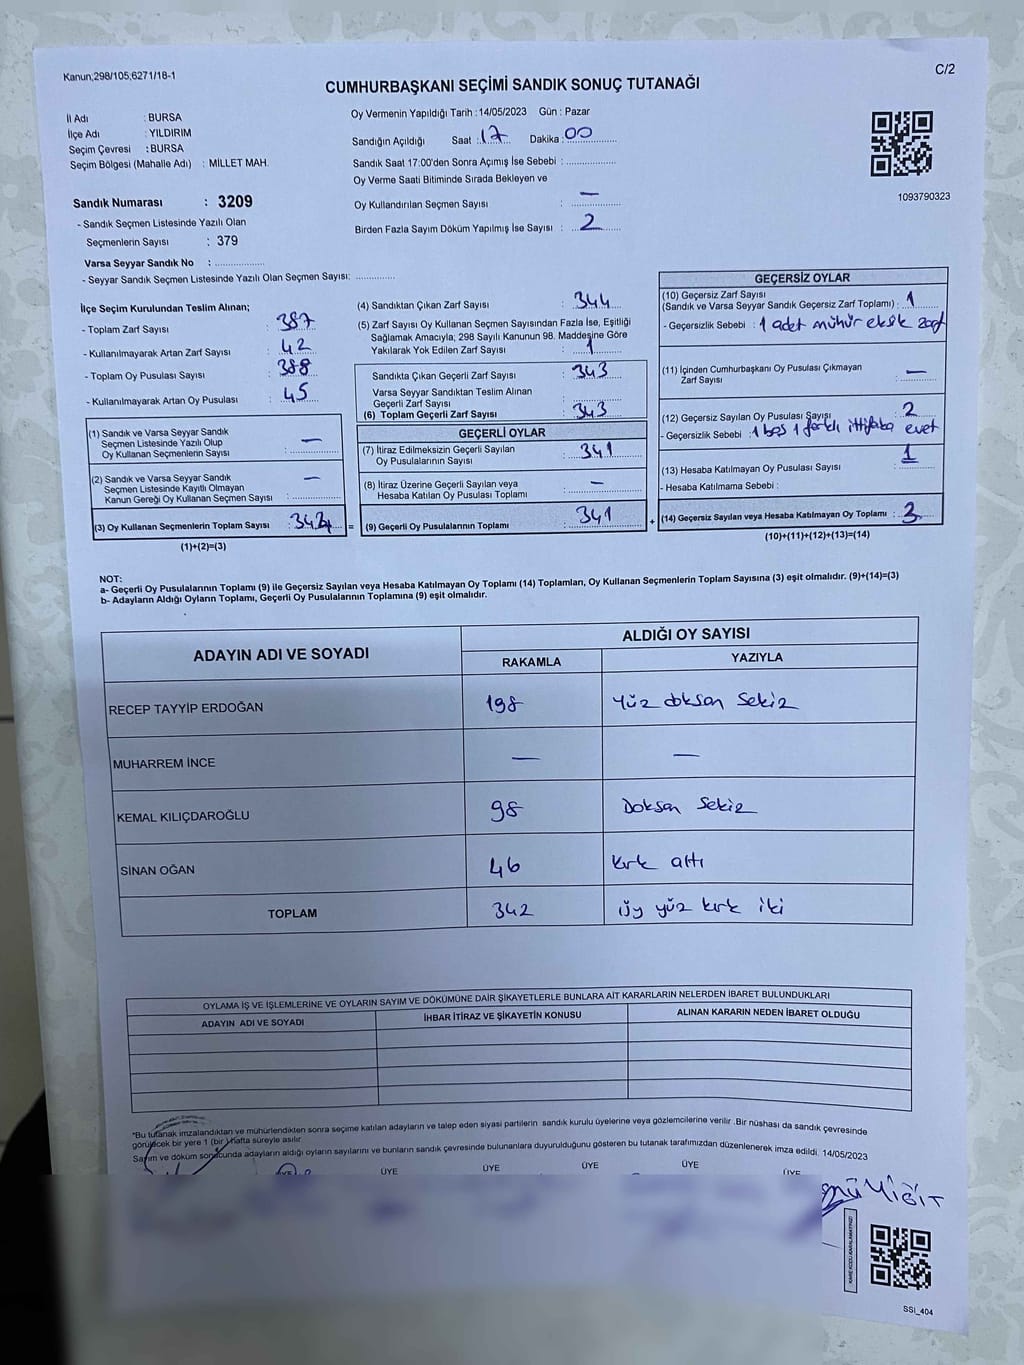 Kanun;298/105;6271/18-1
C/2
CUMHURBAŞKANI SEÇİMİ SANDIK SONUÇ TUTANAĞI
İl Adı : BURSA
İlçe Adı : YILDIRIM
Seçim Çevresi : BURSA
Seçim Bölgesi (Mahalle Adı) : MİLLET MAH.
Sandık Numarası : 3209
- Sandık Seçmen Listesinde Yazılı Olan
Seçmenlerin Sayısı : 379
Varsa Seyyar Sandık No :
- Seyyar Sandık Seçmen Listesinde Yazılı Olan Seçmen Sayısı:
Oy Vermenin Yapıldığı Tarih : 14/05/2023 Gün : Pazar
Sandığın Açıldığı Saat : 17 Dakika : 00
Sandık Saat 17:00'den Sonra Açımış İse Sebebi :
Oy Verme Saati Bitiminde Sırada Bekleyen ve
Oy Kullandırılan Seçmen Sayısı : —
Birden Fazla Sayım Döküm Yapılmış İse Sayısı : 2
1093790323
İlçe Seçim Kurulundan Teslim Alınan;
- Toplam Zarf Sayısı : 387
- Kullanılmayarak Artan Zarf Sayısı : 42
- Toplam Oy Pusulası Sayısı : 388
- Kullanılmayarak Artan Oy Pusulası : 45
(1) Sandık ve Varsa Seyyar Sandık
Seçmen Listesinde Yazılı Olup
Oy Kullanan Seçmenlerin Sayısı : —
(2) Sandık ve Varsa Seyyar Sandık
Seçmen Listesinde Kayıtlı Olmayan
Kanun Gereği Oy Kullanan Seçmen Sayısı : —
(3) Oy Kullanan Seçmenlerin Toplam Sayısı :
(1)+(2)=(3)
(4) Sandıktan Çıkan Zarf Sayısı : 344
(5) Zarf Sayısı Oy Kullanan Seçmen Sayısından Fazla İse, Eşitliği
Sağlamak Amacıyla; 298 Sayılı Kanunun 98. Maddesine Göre
Yakılarak Yok Edilen Zarf Sayısı : 1
Sandıkta Çıkan Geçerli Zarf Sayısı : 343
Varsa Seyyar Sandıktan Teslim Alınan
Geçerli Zarf Sayısı :
(6) Toplam Geçerli Zarf Sayısı : 343
GEÇERLİ OYLAR
(7) İtiraz Edilmeksizin Geçerli Sayılan
Oy Pusulalarının Sayısı : 341
(8) İtiraz Üzerine Geçerli Sayılan veya
Hesaba Katılan Oy Pusulası Toplamı : —
= (9) Geçerli Oy Pusulalarının Toplamı : 341
GEÇERSİZ OYLAR
(10) Geçersiz Zarf Sayısı
(Sandık ve Varsa Seyyar Sandık Geçersiz Zarf Toplamı) : 1
- Geçersizlik Sebebi : 1 adet mühür eksik zarf
(11) İçinden Cumhurbaşkanı Oy Pusulası Çıkmayan
Zarf Sayısı : —
(12) Geçersiz Sayılan Oy Pusulası Sayısı : 2
- Geçersizlik Sebebi : 1 boş 1 farklı ittifaka evet
(13) Hesaba Katılmayan Oy Pusulası Sayısı : 1
- Hesaba Katılmama Sebebi :
+ (14) Geçersiz Sayılan veya Hesaba Katılmayan Oy Toplamı : 3
(10)+(11)+(12)+(13)=(14)
NOT:
a- Geçerli Oy Pusulalarının Toplamı (9) ile Geçersiz Sayılan veya Hesaba Katılmayan Oy Toplamı (14) Toplamları, Oy Kullanan Seçmenlerin Toplam Sayısına (3) eşit olmalıdır. (9)+(14)=(3)
b- Adayların Aldığı Oyların Toplamı, Geçerli Oy Pusulalarının Toplamına (9) eşit olmalıdır.
ADAYIN ADI VE SOYADI
ALDIĞI OY SAYISI
RAKAMLA YAZIYLA
RECEP TAYYİP ERDOĞAN 198 Yüz doksan Sekiz
MUHARREM İNCE — —
KEMAL KILIÇDAROĞLU 98 Doksan Sekiz
SİNAN OĞAN 46 kırk altı
TOPLAM 342 üç yüz kırk iki
OYLAMA İŞ VE İŞLEMLERİNE VE OYLARIN SAYIM VE DÖKÜMÜNE DAİR ŞİKAYETLERLE BUNLARA AİT KARARLARIN NELERDEN İBARET BULUNDUKLARI
ADAYIN ADI VE SOYADI İHBAR İTİRAZ VE ŞİKAYETİN KONUSU ALINAN KARARIN NEDEN İBARET OLDUĞU
*Bu tutanak imzalandıktan ve mühürlendikten sonra seçime katılan adayların ve talep eden siyasi partilerin sandık kurulu üyelerine veya gözlemcilerine verilir .Bir nüshası da sandık çevresinde
görülecek bir yere 1 (bir) hafta süreyle asılır.
Sayım ve döküm sonucunda adayların aldığı oyların sayılarını ve bunların sandık çevresinde bulunanlara duyurulduğunu gösteren bu tutanak tarafımızdan düzenlenerek imza edildi. 14/05/2023
ÜYE ÜYE ÜYE ÜYE ÜYE
SSI_404